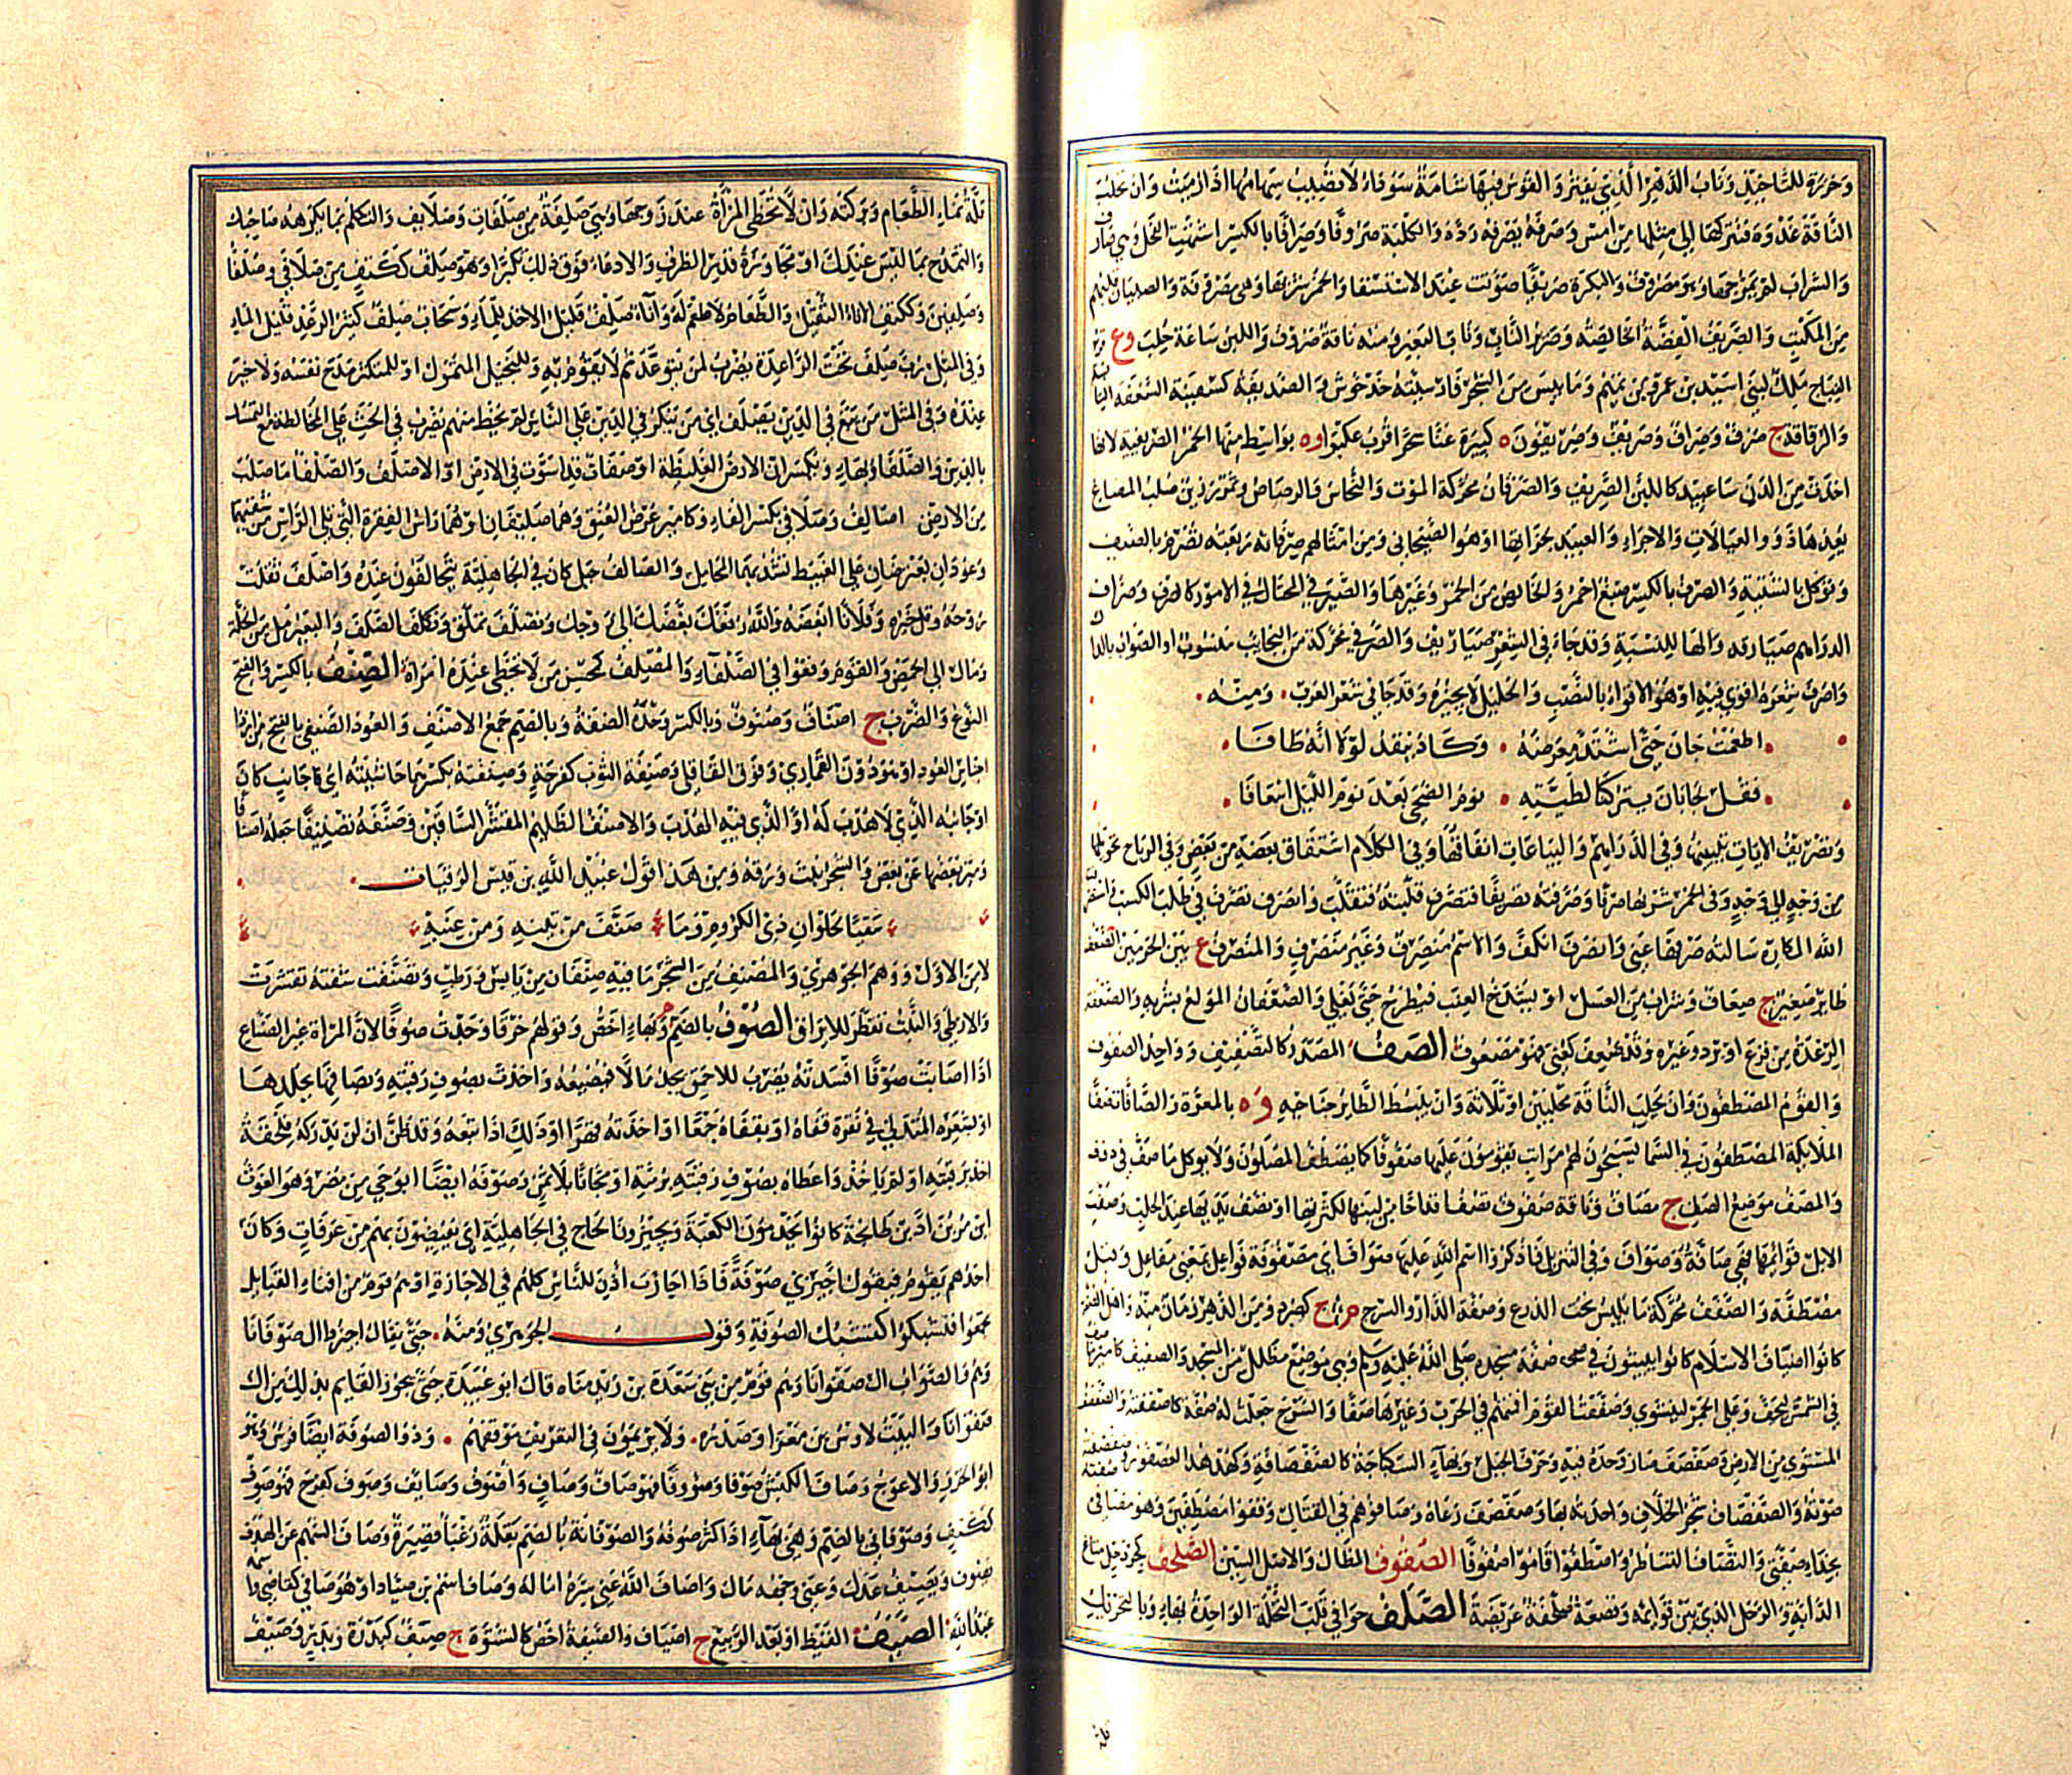 وَخَرَزَة للتَّأخِيذِ وَنَابُ الدَّهْرِ الَّذِي يَفْتَرُّ وَالقَوْسُ فِيهَا شَامَةٌ سَوْدَاءُ لَا تُصِيبُ سِهَامُهَا اذَا رُمِيَتْ وَانْ تَحْلُبَ
النَّاقَةَ غُدْوَةً فَتَتْرُكَهَا الى مِثْلِهَا مِنْ امْسِ وَصَرَفَهُ يَصْرِفُهُ رَدَّهُ وَالكَلْبَة صُرُوفًا وَصِرَافًا بالكَسْرِ اشْتَهَتِ الفَحْلَ وَهِيَ صَارِفٌ
وَالشَّرَابَ لَمْ يَمْزُجْهَا وَهُوَ مَصْرُوفٌ وَالبَكْرَة صَرِيفًا صَوَّتَتْ عِنْدَ الاسْتِسْقَا وَالخَمْرَ شَرِبَهَا وَهِيَ مَصْرُوفَة وَالصِبْيَانَ قَلَبَهُمْ
مِنَ المَكْتَبِ وَالصَّرِيفُ الفِضَّةُ الخَالِصَةُ وَصَرِيرُ البَابِ وَنَابِ البَعِيرِ وَمِنْهُ نَاقَةٌ صَرُوفٌ وَاللَبَنُ سَاعَةَ حُلِبَ وع قُرْبَ
النِبَاجِ مِلْكٌ لِبَنِي اسَيِّد بنِ عَمْرِو بنِ تَمِيم وَمَا يَبِسَ مِنَ الشَجَرِ فَارسِيَّتُهُ خَذْخُوش وَالصَرِيفَةُ كسَفِينَة السَّعَفَة اليَابِسَة
وَالرُّقَاقَة ج صُرُفٌ وَصِرَافٌ وَصَرِيفٌ وَصَرِيفُونَ ة كَبِيرَة غَنَّا شَجْرَا قُرْبَ عُكْبَرَا وة بوَاسِط مِنْهَا الخَمْرُ الصَّرِيفِية لانهَا
اخِذَتْ مِنَ الدَّنّ سَاعَتَئِذ كَاللبَنِ الصَّرِيفِ وَالصَرَفَانُ مُحَرَّكَة المَوْت وَالنُّحَاسُ وَالرصَاصُ وَتَمْر رَزِين صُلْبُ المضَاغِ
يُعِدُّهَا ذَوُو العِيَالَاتِ وَالاجَرَاءِ وَالعَبِيدِ لِجَزَائِهَا اوْ هُوَ الصَّيْحَانِيُّ وَمِنْ امْثَالهم صَرَفَانَة رِبْعِيَّة تُصْرَمُ بالصَّيْفِ
وَتُؤكَلُ بالشَّتِيَّةِ وَالصِرْفُ بالكَسْرِ صِبْغٌ احْمَر وَالخَالِصُ مِنَ الخَمْرِ وَغَيْرِهَا وَالصَّيْرَفِيّ المُحْتَالُ فِي الامُورِ كالصَّيْرَفِ وَصَرَّافُ
الدرَاهم ج صَيَارِفَة وَالهَا للنِسْبَة وَقَدْ جَاءَ فِي الشِّعْرِ صَيَارِيفُ وَالصَّرَفِيّ مُحَرَّكَة مِنَ النَّجَائِب مَنْسُوبٌ اوِ الصَّوَابُ بالدَّالِ
وَاصْرَفَ شِعْرَهُ اقْوَى فِيهِ اوْ هُوَ الاقْوَاءُ بالنَّصْبِ وَالخَلِيل لَا يُجِيزُهُ وَقَدْ جَا فِي شِعْرِ العَرَبِ . وَمِنْهُ .
اطْعَمْتُ جَابَانَ حَتَّى اشْتَدَّ مَغْرِضُهُ . وَكَادَ يَنْقَدُّ لَوْلَا انَّهُ طَافَا .
فَقُلْ لِجَابَانَ يَتْرُكْنَا لِطَيَّتِهِ . نَوْمُ الضُّحَى بَعْدَ نَوْمِ اللَّيْلِ اسْرَافَا .
وَتَصْرِيفُ الايَاتِ تَبْيِينُهَا وَفِي الدَّرَاهِمِ وَالبِيَاعَاتِ انْفَاقُهَا وَفِي الكَلَامِ اشْتِقَاق بَعْضِهِ مِنْ بَعْضٍ وَفِي الرِيَاحِ تَحْوِيلُهَا
مِنْ وَجْهٍ الى وَجْهٍ وَفِي الخَمْرِ شُرْبُهَا صِرْفًا وَصَرَّفْتُهُ تَصْرِيفًا فَتَصَرَّفَ قَلَّبْتُهُ فَتَقَلَّبَ وَاصْطَرَفَ تَصَرَّفَ فِي طَلَبِ الكَسْبِ وَاسْتَصْرَفْتُ
اللهَ المَكَارِهَ سَالتُهُ صَرْفَهَا عَنِّي وَانْصَرَفَ انْكَفَّ وَالاسْمُ مُنْصَرِفٌ وَغَيْرُ مُنْصَرِفٍ وَالمُنْصَرَفُ ع بَيْنَ الحَرَمَيْنِ الصَّعْفُ
طَائِر صَغِيرٌ ج صِعَافٌ وَشَرَابٌ مِنَ العَسَلِ اوْ يُشْدَخُ العِنَب فَيُطْرَحُ حَتَّى يَغْلِي وَالصَّعْفَانُ المُولَعُ بشُرْبِهِ وَالصَّعْفَة
الرِّعْدَة مِنْ فَزَعٍ اوْ بَرْدٍ وَغَيْرِهِ وَقَدْ صُعِفَ كعُنِيَ فَهُوَ مَصْعُوفٌ الصَّفُّ المَصْدَر كالتَّصْفِيفِ وَوَاحِد الصفوف
وَالقَوْمُ المُصْطَفُّونَ وَانْ تَحْلُبَ النَّاقَة فِي مِحْلَبَيْنِ اوْ ثَلَاثَة وَانْ يَبْسُطَ الطَّائِر جَنَاحَيْهِ وة بالمعَرَّة وَالصَّافَّاتِ صَفًّا
المَلَائِكَة المُصْطَفُّونَ فِي السَّمَا يُسَبِّحُونَ لَهُمْ مَرَاتِبُ يَقُومُونَ عَلَيْهَا صُفُوفًا كَمَا يَصْطَفُّ المُصَلُّونَ وَلَا يوكل مَا صَفَّ فِي دفف
وَالمَصَفّ مَوْضِعُ الصَّفِّ ج مَصَافّ وَنَاقَة صَفُوفٌ تَصُفُّ اقدَاحًا مِنْ لَبَنِهَا لِكَثْرَتِهِ اوْ تَصُفّ يَدَيْهَا عِنْدَ الحَلْبِ وَصَفَّتِ
الابِلُ قَوَائِمَهَا فَهِيَ صَافَّةٌ وَصَوَافّ وَفِي التَّنْزِيلِ فَاذْكُرُوا اسْمَ اللهِ عَلَيْهَا صَوَافَّ ايْ مَصْفُوفَة فَوَاعِل بِمَعْنَى مَفَاعِل وَقِيلَ
مُصْطَفَّة وَالصَّفَفُ مُحَرَّكَة مَا يُلْبَسُ تَحْتَ الدِرْعِ وَصُفَّة الدَّارِ وَالسَّرْجِ م ج كصُرَد وَمِنَ الدَّهْرِ زَمَان مِنْهُ وَاهْلُ الصُّفَّة
كَانُوا اضْيَافَ الاسْلَامِ كَانُوا يَبِيتُونَ فِي صُفَّة مَسْجِدِه صَلَّى اللهُ عَلَيْهِ وَسَلَّم وَهِيَ مَوْضِع مُظَلَّل مِنَ المَسْجِد وَالصَفِيفُ كاميرٍ مَا صُفَّ
فِي الشَّمْسِ لِيَجِفَّ وَعَلَى الجَمْرِ لِيَنْشَوِي وَصَفَفْتُ القَوْمَ اقَمْتهم فِي الحَرْبِ وَغَيْرِهَا صَفًّا وَالسَّرْجَ جَعَلْتُ لَهُ صُفَّة كاصْفَفْتُهُ وَالصَّفْصَفُ
المُسْتَوِي مِنَ الارْضِ وَصَفْصَفَ سَارَ وَحْدَهُ فِيهِ وَحَرْفُ الجَبَل وَبهَاءِ السِّكْبَاجَةُ كالصَّفْصَافَة وَكهُدْهُد العُصْفُور وَصَفْصَفَتُهُ
صَوْتُهُ وَالصَّفْصَافُ شَجَرُ الخِلَافِ وَاحِدَتُهُ بهَا وَصَفْصَفَ رَعَاهُ وَصَافُّوهُمْ فِي القِتَالِ وَقَفُوا مُصْطَفِّينَ وَهُوَ مُصَافِّي
بحِذَاءِ صُفَّتِي وَالتَّصَافُّ التَّسَاطُرُ وَاصْطَفُّوْا قَامُوْا صُفُوفًا الصُّقُوف المَظَالّ وَالاصْل السِّيْن الصِّلَّحْفُ كجِرْدَحْل مَتَاع
الدَّابَّةِ وَالرَّحْل الَّذِي بَيْنَ قَوَائِمِهِ وَقَصْعَةٌ صِلَّحْفَةٌ عَرِيضَةٌ الصَّلْفُ خَوَافِي قَلْبِ النَّخْلَة الوَاحِدَةُ بهَاءٍ وَبالتحْرِيكِ
قلة
قِلَّةُ نَمَاءِ الطَّعَامِ وَبَرَكَتِهِ وَانْ لَا تَحْظَى المَرْأَةُ عِنْدَ زَوْجِهَا وَهِيَ صَلِفَةٌ مِنْ صَلِفَاتٍ وَصَلَائِف وَالتكَلُّمُ بمَا يَكْرَهُهُ صَاحِبُكَ
وَالتَّمَدُّحُ بمَا لَيْسَ عِنْدَكَ اوْ مُجَاوَزَةُ قَدْرِ الظَّرْفِ وَالادّعَاءُ فَوْقَ ذلِكَ تَكَبُّرًا وَهُوَ صَلِفٌ ككَتِفٍ مِنْ صَلَافَى وَصُلَفَاءَ
وَصَلِفِينَ وَككَتِفٍ الانَاءُ الثَّقِيلُ وَالطَّعَامُ لَا طَعْمَ لَهُ وَانَاءٌ صَلِفٌ قَلِيل الاخْذِ لِلمَاءِ وَسَحَاب صَلِفٌ كَثِيرُ الرَّعْدِ قَلِيل المَاءِ
وَفِي المَثَل رُبَّ صَلَفٍ تَحْتَ الرَّاعِدَة يُضْرَبُ لِمَنْ يَتَوَعَّدُ ثُمَّ لَا يَقُومُ بِهِ وَلِلبَخِيل المُتَمَوِّل اوْ لِلمُكْثِر مَدْحَ نَفْسِهِ وَلَا خَيْرَ
عِنْدَهُ وَفِي المَثَل مَنْ يَبْغِ فِي الدِّيْنِ يَصْلَفْ ايْ مَنْ يُنْكِرْ فِي الدِّيْنِ عَلَى النَّاسِ لَمْ يَحْظَ مِنْهُمْ يُضْرَبُ فِي الحَثِّ عَلَى المُخَالَطَة مَعَ التَّمَسُّك
بالدِّينِ وَالصَّلْفَاءُ وَبهَاءٍ وَيُكْسَرَانِ الارْضُ الغَلِيظَة اوْ صَفَاةٌ قَدِ اسْتَوَتْ فِي الارْضِ اوِ الاصْلَفُ وَالصَّلْفَاءُ مَا صَلُبَ
مِنَ الارْضِ اصَالِفُ وَصَلَافِي بكَسْرِ الفَاءِ وَكاميْرٍ عَرْضُ العُنُقِ وَهُمَا صَلِيفَانِ اوْ هُمَا رَاسُ الفِقْرَة الَّتِي تَلِي الرَّاسَ مِنْ شِقَّيْهَا
وَعُودَانِ يُعْتَرَضَانِ عَلَى الغَبِيطِ تُشَدُّ بهِمَا المَحَامِل وَالصَّالِفُ جَبَل كَانَ فِي الجَاهِلِيَّة يَتَحَالَفُونَ عِنْدَهُ وَاصْلَفَ ثَقُلَتْ
رُوْحُهُ وَقَلَّ خَيْرُهُ وَفُلَانًا ابْغَضَهُ وَاللهُ رُفْغَكَ بَغَّضَكَ الى زَوْجِكَ وَتَصَلَّفَ تَمَلَّقَ وَتَكَلَّفَ الصَّلَفَ وَالبَعِيْر مَلَّ مِنَ الخُلَّة
وَمَالَ الى الحَمْضِ وَالقَوْمُ وَقَعُوا فِي الصَّلْفَاءِ وَالمُصْلِفُ كمُحْسِن مَنْ لَا تَحْظَى عِنْدَهُ امْرَأة الصِّنْفُ بالكَسْرِ وَالفَتْحِ
النَّوْعُ وَالضَّرْبُ ج اصْنَافٌ وَصُنُوفٌ وَبالكَسْرِ وَحْدَهُ الصِّفَةُ وَبالضَّمِ جَمْعُ الاصْنَفِ وَالعُودُ الصَّنْفِيّ بالفَتْحِ مِنْ ارْدَا
اجْنَاسِ العُودِ اوْ هُوَ دُوْنَ القَمَارِيّ وَفَوْقَ القَاقُلِّيّ وَصَنِفَة الثَّوْبِ كفَرِحَةٍ وَصِنْفُهُ وَصِنْفَتُهُ بكَسْرِهِمَا حَاشِيَتُهُ ايُّ جَانِبٍ كَانَ
اوْ جَانِبُهُ الَّذِي لَا هُدْبَ لَهُ اوِ الَّذِي فِيهِ الهُدْبُ وَالاصْنَفُ الظَّلِيْمُ المُتَقَشِّر السَّاقَيْنِ وَصَنَّفَهُ تَصْنِيفًا جَعَلَهُ اصْنَافًا
وَمَيَّزَ بَعْضَهَا عَنْ بَعْضٍ وَالشَّجَرُ نَبَتَ وَرَقُهُ وَمِنْ هَذَا قَوْل عُبَيْدِ اللهِ بنِ قَيْسِ الرُّقَيَّات .
سَقْيًا لِحُلْوَانِ ذِي الكُرُومِ وَمَا صَنَّفَ مِنْ تِيْنِهِ وَمِنْ عِنَبِهِ
لَا مِنَ الاوَّل وَوَهِمَ الجَوْهَرِيّ وَالمُصَنَّفُ مِنَ الشَّجَر مَا فِيهِ صِنْفَان مِنْ يَابِس وَرَطْب وَتَصَنَّفَت شَفَتُهُ تَقَشَّرَتْ
وَالارْطَى وَالنَّبْت تَفَطَّرَ لِلايْرَاقِ الصُّوْفُ بالضَّمِّ م وَبهَاءٍ اخَصُّ وَقَوْلُهُمْ خَرْقَا وَجَدَتْ صُوفًا لانَّ المَرْاة غَيْرَ الصَّنَاعِ
اذَا اصَابَتْ صُوْفًا افْسَدَتْهُ يُضْرَبُ لِلاحْمَقِ يَجِدُ مَالًا فَيُضِيعُهُ وَاخَذْتُ بصُوفِ رَقَبَتِهِ وَبصَافِهَا بجِلْدِهَا
اوْ بشَعَرِهِ المُتَدَلِّي فِي نُقْرَة قَفَاهُ اوْ بقَفَاهُ جَمْعًا اوْ اخَذْتَهُ قَهْرًا اوْ ذَلِكَ اذَا تَبِعَهُ وَقَدْ ظَنَّ انْ لَنْ يُدْرِكَهُ فَلَحِقَهُ
اخَذَ برَقَبَتِهِ اوْ لَمْ يَاخُذْ وَاعْطَاه بصُوْفِ رَقَبَتِهِ برُمَّتِهِ اوْ مَجَّانًا بلَا ثَمَنٍ وَصَوْفَةُ ايْضًا ابُو حَيٍّ مِنْ مُضَرَ وَهُوَ الغَوْثُ
ابْنُ مُرِّ بْنِ ادِّ بْنِ طَابِخَةَ كَانُوا يَخْدِمُونَ الكَعْبَةَ وَيُجِيْزُونَ الحَاج فِي الجَاهِلِيَّةِ ايْ يُفِيضُوْنَ بهِمْ مِنْ عَرَفَاتٍ وَكَانَ
احَدُهُمْ يَقُومُ فَيَقُولُ اجِيْزِي صُوْفَةُ فَاذَا اجَازَتْ اذِنَ للنَّاسِ كُلِّهِمْ فِي الاجَازَةِ اوْ هُمْ قَوْمٌ مِنْ افْنَاءِ القَبَائِلِ
تَجَمَّعُوا فَتَشَبَّكُوا كَتَشَبُّكِ الصُّوفَةِ وَقَوْل الجَوْهَرِيّ وَمِنْهُ . حَتَّى يُقَالَ اجِيزُوا الَ صُوْفَانَا
وَهَمٌ وَالصَّوَابُ الَ صَفْوَانَا وَهُمْ قَوْمٌ مِنْ بَنِي سَعْدِ بْنِ زَيْدِ مَنَاة قَالَ ابُو عُبَيْدَةَ حَتَّى يَجُوزَ القَائِمُ بذَلِكَ مِنْ الِ
صَفْوَانَا وَالبَيْتُ لاوْسِ بْنِ مَغْرَا وَصَدْرُهُ . وَلَا يَرِيْمُوْنَ فِي التَّعْرِيفِ مَوْقِفَهُمْ . وَذُو الصُّوفَة ايْضًا فَرَسٌ وَهُوَ
ابُو الخَزَزِ وَالاعْوَجِ وَصَافَ الكَبْشُ صَوْفًا وَصُوُوفًا فَهُوَ صَافٌ وَصَافٍ وَاصْوَفُ وَصَائِف وَصَوِفَ كفَرِحَ فَهُوَ صَوِفٌ
ككَتِفٍ وَصُوْفَانِيٌّ بالضَّمِّ وَهِيَ بهَاءٍ اذَا كَثُرَ صُوفُهُ وَالصُوْفَانَة بالضَّمِّ بَقْلَةٌ زَغْبَاءُ قَصِيْرَةٌ وَصَافَ السَّهْمُ عَنِ الهَدَفِ
يَصُوف وَيَصِيفُ عَدَلَ وَعَنِّي وَجْهُهُ مَالَ وَاصَافَ اللهُ عَنِّي شَرَّهُ امَالَهُ وَصَافُ اسْمُ بْنِ صَيَّاد اوْ هُوَ صَافِي كقَاضِي وَاسْمُهُ
عَبْدُ اللهِ الصَّيْفُ القَيْظُ اوْ بَعْدَ الرَّبِيع ج اصْيَاف وَالصَّيْفَةُ اخَصُّ كالشَّتْوَة ج صِيَفٌ كبَدْرَة وَبِدَر وَصَيْفٌ